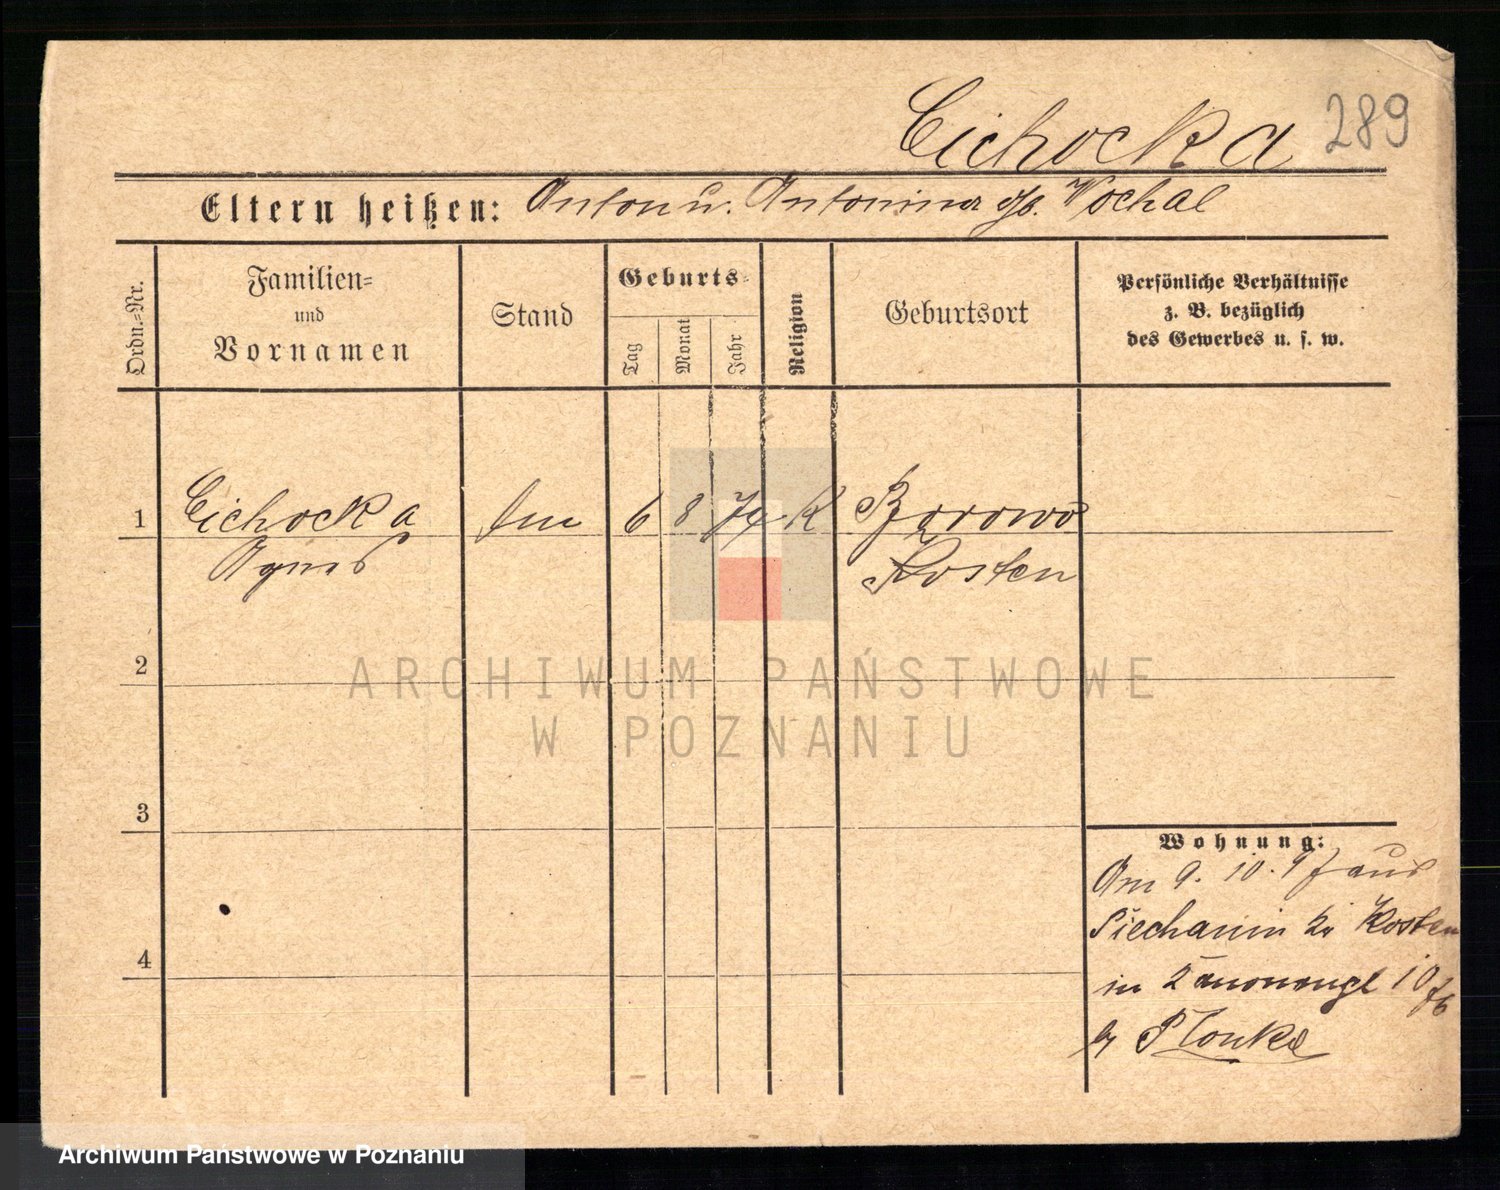 Cichocka 289
Eltern heißen: Anton u. Antonina geb. Wochal
Ordn.-Nr.
Familien-
und
Vornamen
Stand
Geburts-
Tag
Monat
Jahr
Religion
Geburtsort
Persönliche Verhältnisse
z. B. bezüglich
des Gewerbes u. s. w.
1 Cichocka 6 8 74 K Borowo
Agnes Kosten
2
3
4
Wohnung:
Am 9. 10. 97 aus
Siechanin Kr Kosten
in
ARCHIWUM PAŃSTWOWE
W POZNANIU
Archiwum Państwowe w Poznaniu